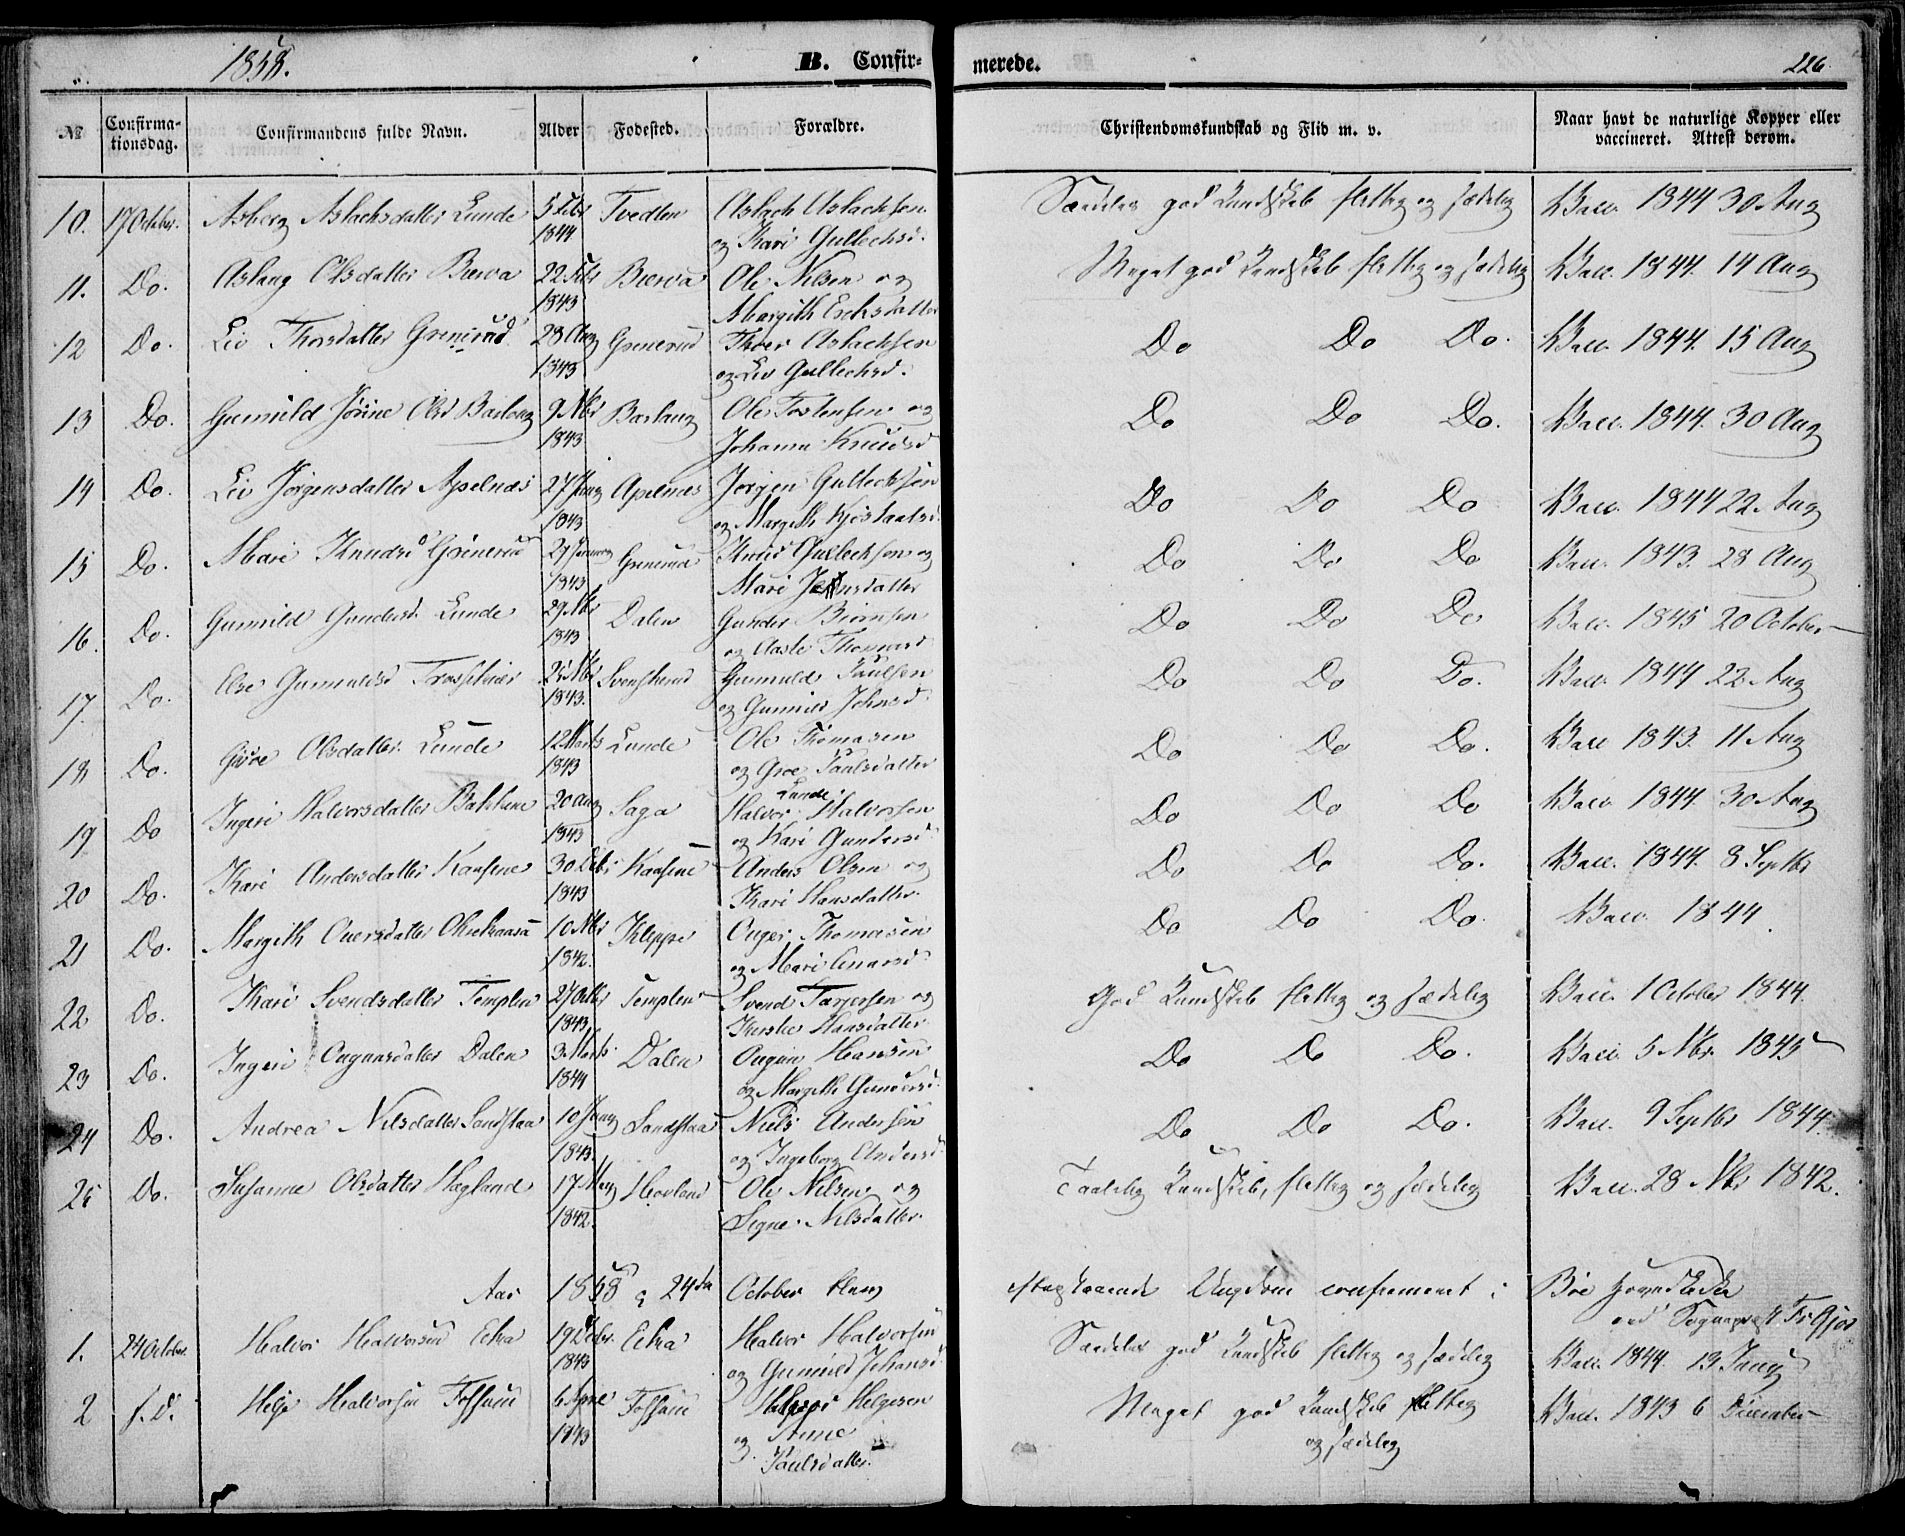 1858.
B. Confir-
merede.
226
№
Confirma-
tionsdag.
Confirmandens fulde Navn.
Alder
Fødested.
Forældre.
Christendomskundskab og Flid m. v.
Naar havt de naturlige Kopper eller
vaccineret. Attest derom.
10. 17 October. Asberg Aslachsdatter Lunde 5 Febr 1844 Tvedten Aslach Aslachsen
og Kari Gullechsd. Særdeles god Kundskab flittig og sædelig Vacc. 1844 30 Aug
11. Do. Aslaug Olsdatter Børva 22 Febr 1843 Børva Ole Nilsen og
Margith Erchsdatter Meget god Kundskab flittig og sædelig Vacc. 1844. 14 Aug
12 Do. Liv Thorsdatter Grenerud 28 Aug 1843 Grenerud Thor Aslachsen
og Liv Gullechsd. Do Do Do. Vacc. 1844. 15 Aug
13 Do. Gunnild Jørine Olsd Barlaug 9 Nbr 1843 Barlaug Ole Tostensen og
Johanna Knudsd Do Do Do. Vacc. 1844. 30 Aug
14 Do. Liv Jørgensdatter Apelnæs 27 1843 Apelnæs Jørgen Gullechsen
og Margith Kjøstaalsd. Do Do Do Vacc. 1844 22 Aug
15 Do. Mari Knudsd Grønerud 29 Januar 1843 Grenerud Knud Gullechsen og
Mari Jensdatter Do Do Do Vacc. 1843. 28 Aug
16. Do. Gunnild Gundersd. Lunde 29 Nbr 1843 Dalen Gunder Biørnsen
og Aaste Thomasd Do Do Do Vacc. 1845 20 October
17 Do. Gunnulfsd 25 Nbr 1843. Svenskerud Gunnulf Paulsen
og Gunnild Johnsd. Do Do Do. Vacc. 1844 22 Aug
18 Do. Groe Olsdatter Lunde 12 Marts 1843 Lunde Ole Thomasen
og Groe Paulsdatter Do Do Do. Vacc 1843. 11 Aug
19 Do Ingeri Halvorsdatter Bakkane 20 Aug 1843 Saga Halvor Halvorsen Lunde
og Kari Gundersd Do Do Do Vacc. 1844. 30 Aug
20 Do. Kari Andersdatter Kaasene 30 1843 Kaasene Anders Olsen og
Kari Hansdatter. Do Do Do. Vacc. 1844. 8 Septbr
21 Do. Margith 10 Nbr 1842. Kleppe Thomasen
og Mari Do Do Do. Vacc. 1844.
22 Do. Kari Svendsdatter Templen 27 Octbr 1843. Templen Svend Tarjersen og
Hansdatter God Kundskab flittig og sædelig Vacc. 1 October 1844.
23 Do. Ingeri Augunsdatter Dalen 3 Marts 1844 Dalen Augun Hansen
og Margith Gundersd. Do Do Do. Vacc. 5 Nbr. 1845
24 Do. Andrea Nilsdatter Sandstaa 10 1843. Sandstaa Niels Andersen
og Ingeborg Andersd. Do Do Do. Vacc. 9 Septbr 1844.
25 Do. Susanne Olsdatter Hægland 17 May 1842. Hovland Ole Nilsen og
Signe Nilsdatter. Taalelig Kundskab, flittig og sædelig Vacc. 28 Nbr 1842.
Aar 1858 24de October blev efterstaaende Ungdom confirmeret i Bøe Hovedkirke
ved Sogneprest Fr.
1. 24 October. Halvor Halvorsen Ecka 19 Febr. 1843 Ecka Halvor Halvorsen
og Gunnild Johansd. Særdeles god Kundskab flittig og sædelig Vacc. 1844. 13 Juny
2 s.D. Helje Halvorsen Fossum 6 April 1843 Fossum Helgesen
og Anne
Paulsdatter. Meget god Kundskab flittig
og sædelig Vacc. 1843 6 December